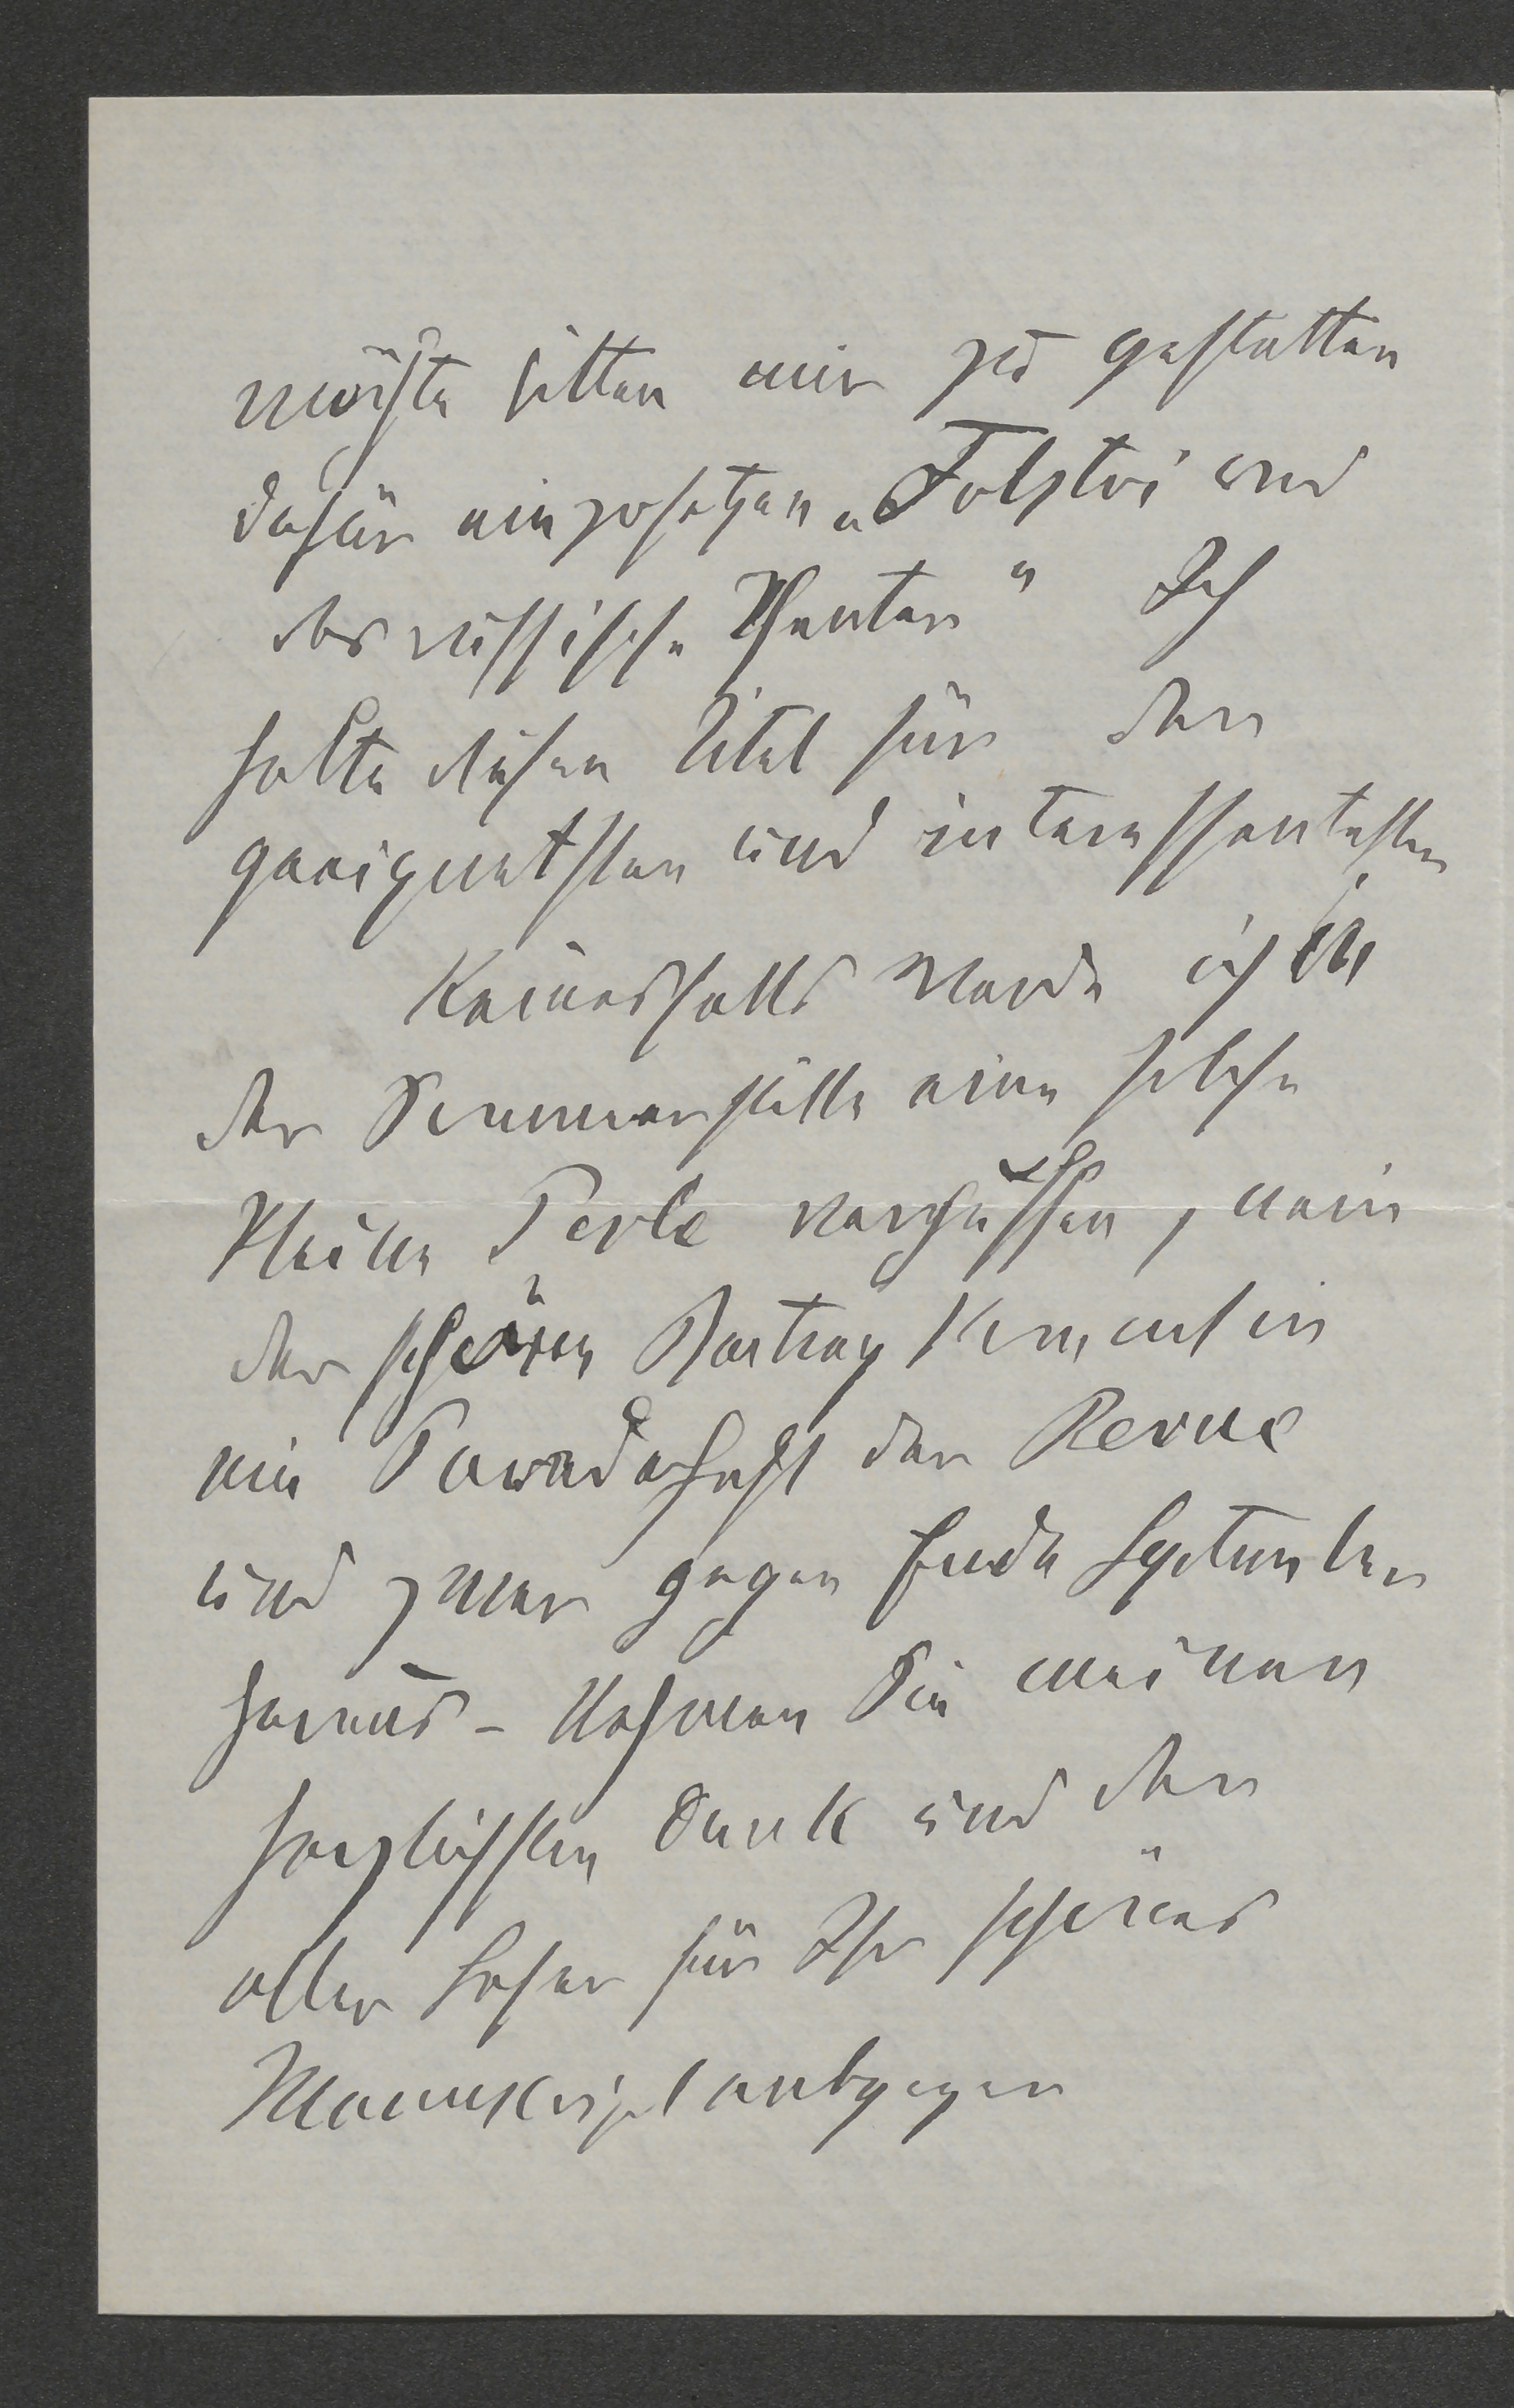 möchte bitten mir zu gestatten
dafür einzusetzen „Tolstoi und
das russische Theater“ Ich
halte diesen Titel für den
geeignetsten und interessantesten
Keinesfalls werde ich in
der Sommerstille eine solche
kleine Perle verpuffen, nein
der schöne Beitrag kommt in
ein Paradeheft der Revue
und zwar gegen Ende September
heraus – Nehmen Sie meinen
herzlichsten Dank und den
aller Leser für Ihr schönes
Manuskript entgegen